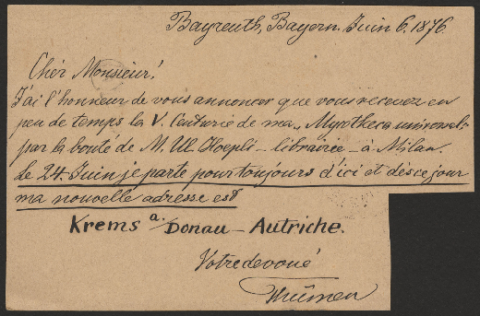 Bayreuth, Bayern. Juin 6. 1876.
Chér Monsieur!
J'ai l'honneur de vous annoncer que vous recevez en
peu de temps la V. Centurie de ma „Mycotheca universalis"
par la bonté de M. Ul. Hoepli – librairie – à Milan.
Le 24 Juin je parte pour toujours d'ici et dès ce jour
ma nouvelle adresse est
Krems a/Donau – Autriche.
Votre devoué
Thümen